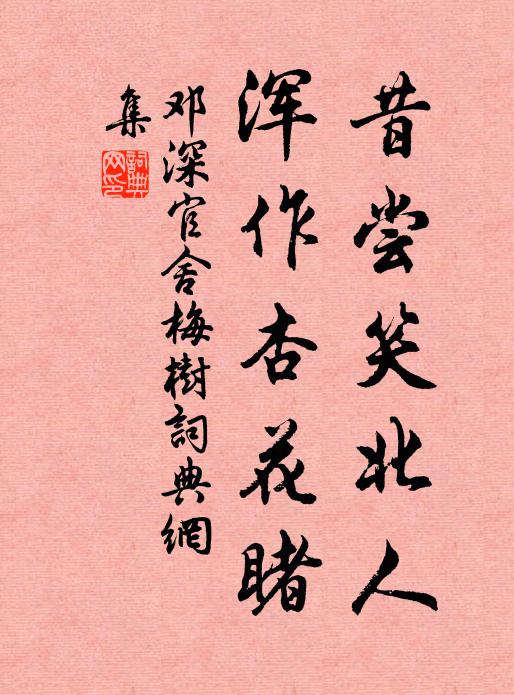 昔尝笑北人
浑作杏花睹
邓深官舍梅樹詞典網
集
詞典
网印